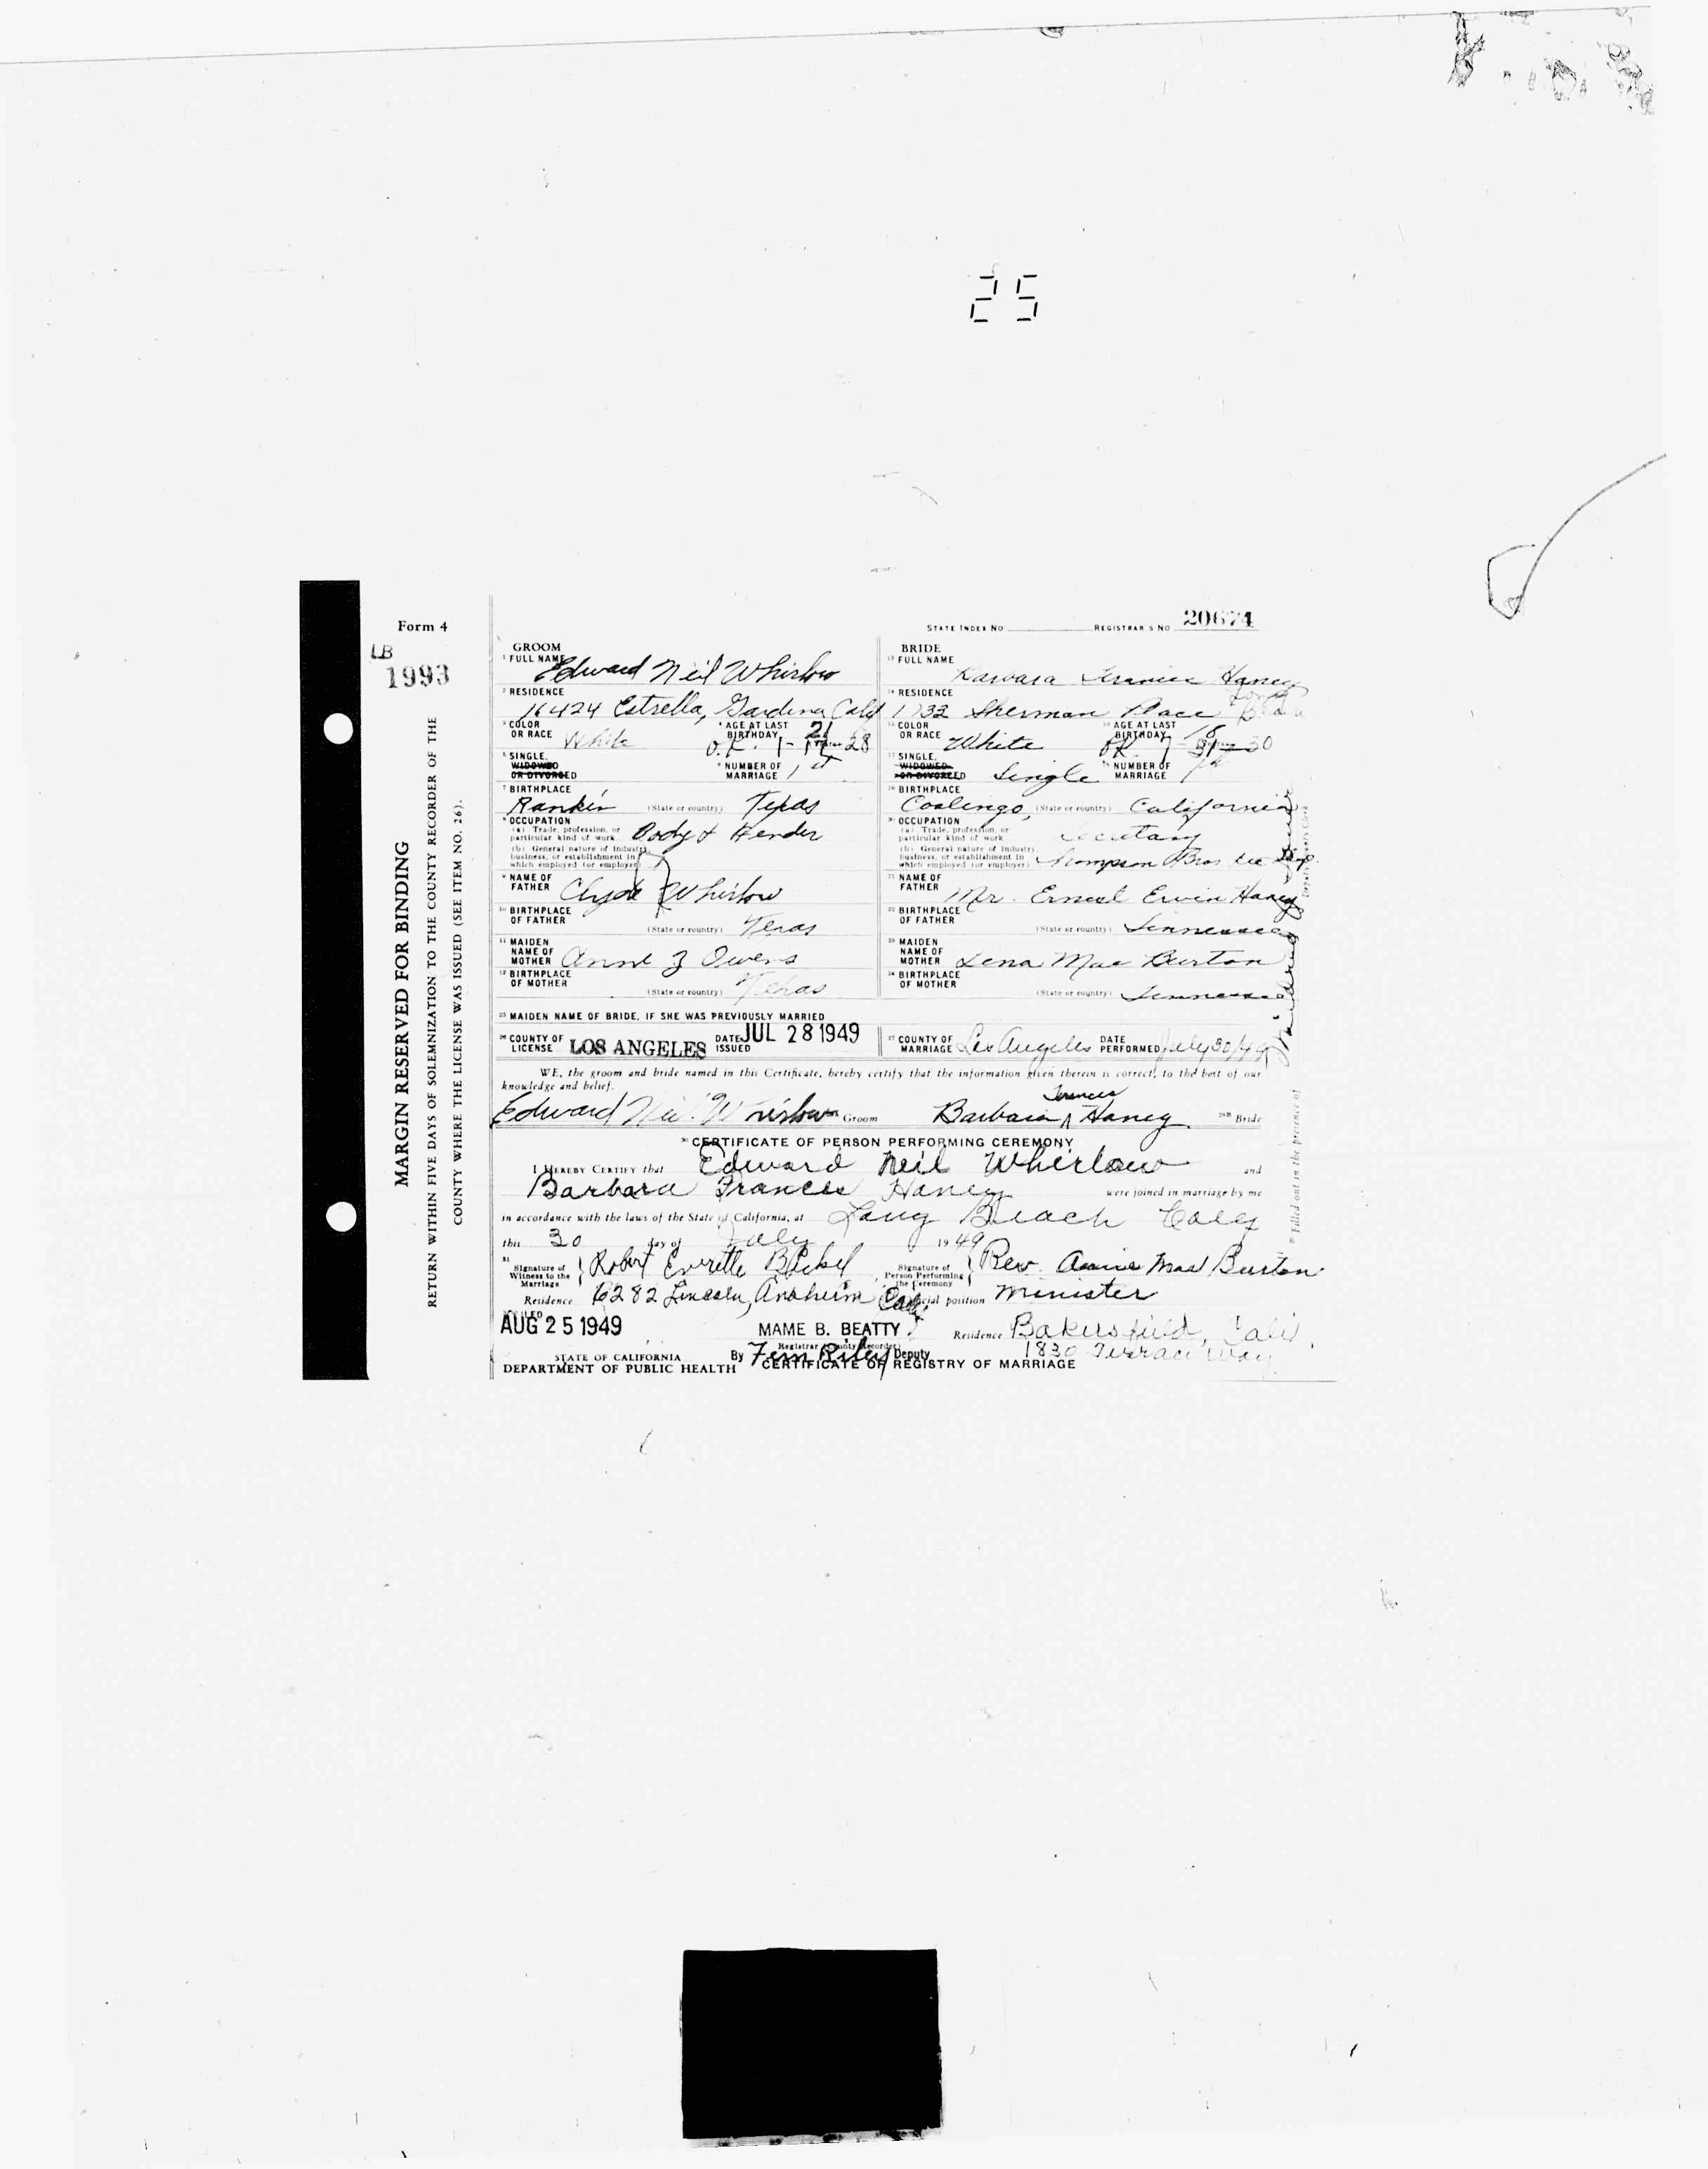 25
Form 4
LB
1993
MARGIN RESERVED FOR BINDING
RETURN WITHIN FIVE DAYS OF SOLEMNIZATION TO THE COUNTY RECORDER OF THE
COUNTY WHERE THE LICENSE WAS ISSUED (SEE ITEM NO. 26).
STATE INDEX NO REGISTRAR'S NO 20674
GROOM
1 FULL NAME Edward Neil Whirlow
2 RESIDENCE
16424 Estrella, Gardena Calif
3 COLOR OR RACE White
4 AGE AT LAST BIRTHDAY 21
O.K. 1- 28
5 SINGLE, WIDOWED OR DIVORCED
6 NUMBER OF MARRIAGE 1st
7 BIRTHPLACE
Rankin (State or country) Texas
8 OCCUPATION
(a) Trade, profession, or particular kind of work Body & Fender
(b) General nature of industry, business, or establishment in which employed (or employer)
9 NAME OF FATHER Clyde Whirlow
10 BIRTHPLACE OF FATHER (State or country) Texas
11 MAIDEN NAME OF MOTHER Anne J Owens
12 BIRTHPLACE OF MOTHER (State or country) Texas
BRIDE
13 FULL NAME
Barbara Frances Haney
14 RESIDENCE
1732 Sherman Place Long Beach
15 COLOR OR RACE White
16 AGE AT LAST BIRTHDAY 18
OK 7-31-30
17 SINGLE, WIDOWED OR DIVORCED Single
18 NUMBER OF MARRIAGE 1st
19 BIRTHPLACE
Coalingo, (State or country) California
20 OCCUPATION
(a) Trade, profession, or particular kind of work Secretary
(b) General nature of industry, business, or establishment in which employed (or employer) Thompson Bros
21 NAME OF FATHER Mr. Ernest Erwin Haney
22 BIRTHPLACE OF FATHER (State or country) Tennessee
23 MAIDEN NAME OF MOTHER Lena Mae Burton
24 BIRTHPLACE OF MOTHER (State or country) Tennessee
25 MAIDEN NAME OF BRIDE, IF SHE WAS PREVIOUSLY MARRIED
26 COUNTY OF LICENSE LOS ANGELES DATE ISSUED JUL 28 1949
27 COUNTY OF MARRIAGE Los Angeles DATE PERFORMED July 30/49
WE, the groom and bride named in this Certificate, hereby certify that the information given therein is correct, to the best of our
knowledge and belief.
Frances
Edward Neil Whirlow Groom Barbara ^ Haney Bride
CERTIFICATE OF PERSON PERFORMING CEREMONY
I HEREBY CERTIFY that Edward Neil Whirlow and
Barbara Frances Haney were joined in marriage by me
in accordance with the laws of the State of California, at Long Beach Calif
this 30 day of July 1949
31 Signature of Witness to the Marriage Robert Everette
Signature of Person Performing the Ceremony Rev. Annie Mae Burton
Residence 6282 Lincoln, Anaheim Calif. Official position Minister
FILED
AUG 25 1949
MAME B. BEATTY
Registrar (County Recorder)
Residence Bakersfield, Calif.
1830 Terrace Way
By Fern Riley Deputy
STATE OF CALIFORNIA
DEPARTMENT OF PUBLIC HEALTH
CERTIFICATE OF REGISTRY OF MARRIAGE
Filled out in the presence of
Deputy County Clerk